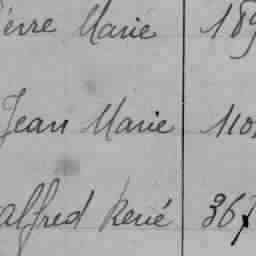 Pierre Marie 189
Jean Marie 110
Alfred René 367